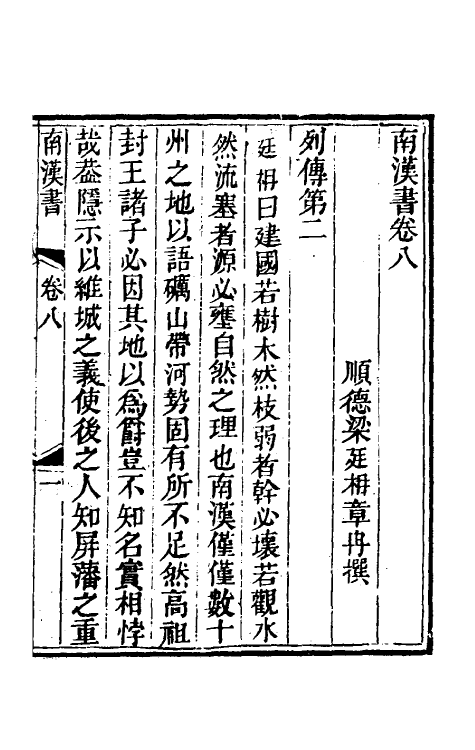 南漢書卷八
順德梁廷枏章冉撰
列傳第二
廷枏曰建國若樹木然枝弱者幹必壞若觀水
然流塞者源必壅自然之理也南漢僅僅數十
州之地以語礪山帶河勢固有所不足然高祖
封王諸子必因其地以爲爵豈不知名實相悖
哉葢隱示以維城之義使後之人知屏藩之重
南漢書
卷八
一